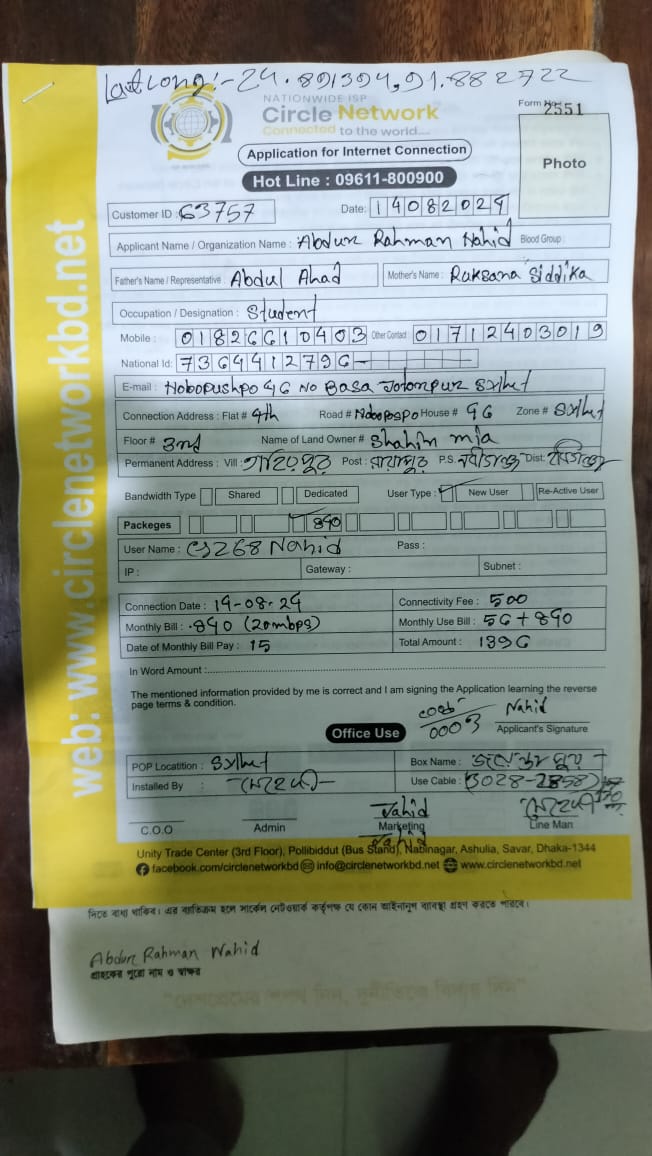 Lat Long:- 24.891394,91.882722
NATIONWIDE ISP
Circle Network
Connected to the world....
Form No 2551
Application for Internet Connection
Photo
Hot Line : 09611-800900
Customer ID : 63757 Date: 14082024
Applicant Name / Organization Name : Abdur Rahman Nahid Blood Group :
Father's Name / Representative : Abdul Ahad Mother's Name : Ruksana Siddika
Occupation / Designation : Student
Mobile : 01826610403 Other Contact : 01712403019
National Id: 7364412796
E-mail : Nobopushpo 96 No Basa Jotorpur Sylhet
Connection Address : Flat # 4th Road # Nobopospo House # 96 Zone # Sylhet
Floor # 3rd Name of Land Owner # Shahin mia
Permanent Address : Vill : Post : P.S. নবীগঞ্জ Dist: হবিগঞ্জ
Bandwidth Type Shared Dedicated User Type : New User Re-Active User
Packeges 840
User Name : CS268 Nahid Pass :
IP : Gateway : Subnet :
Connection Date : 14-08-24 Connectivity Fee : 500
Monthly Bill : 840 (20mbps) Monthly Use Bill : 56+840
Date of Monthly Bill Pay : 15 Total Amount : 1396
In Word Amount :
The mentioned information provided by me is correct and I am signing the Application learning the reverse
page terms & condition.
Nahid
Applicant's Signature
Office Use
POP Locatition : Sylhet Box Name :
Installed By : Use Cable :
Jahid
C.O.O Admin Marketing Line Man
Jahid
Unity Trade Center (3rd Floor), Pollibiddut (Bus Stand), Nabinagar, Ashulia, Savar, Dhaka-1344
facebook.com/circlenetworkbd info@circlenetworkbd.net www.circlenetworkbd.net
web: www.circlenetworkbd.net
দিতে বাধ্য থাকিব। এর ব্যতিক্রম হলে সার্কেল নেটওয়ার্ক কর্তৃপক্ষ যে কোন আইনানুগ ব্যবস্থা গ্রহণ করতে পারবে।
Abdur Rahman Nahid
গ্রাহকের পুরো নাম ও স্বাক্ষর
"দেশপ্রেমের শপথ নিন, দুর্নীতিকে বিদায় দিন"